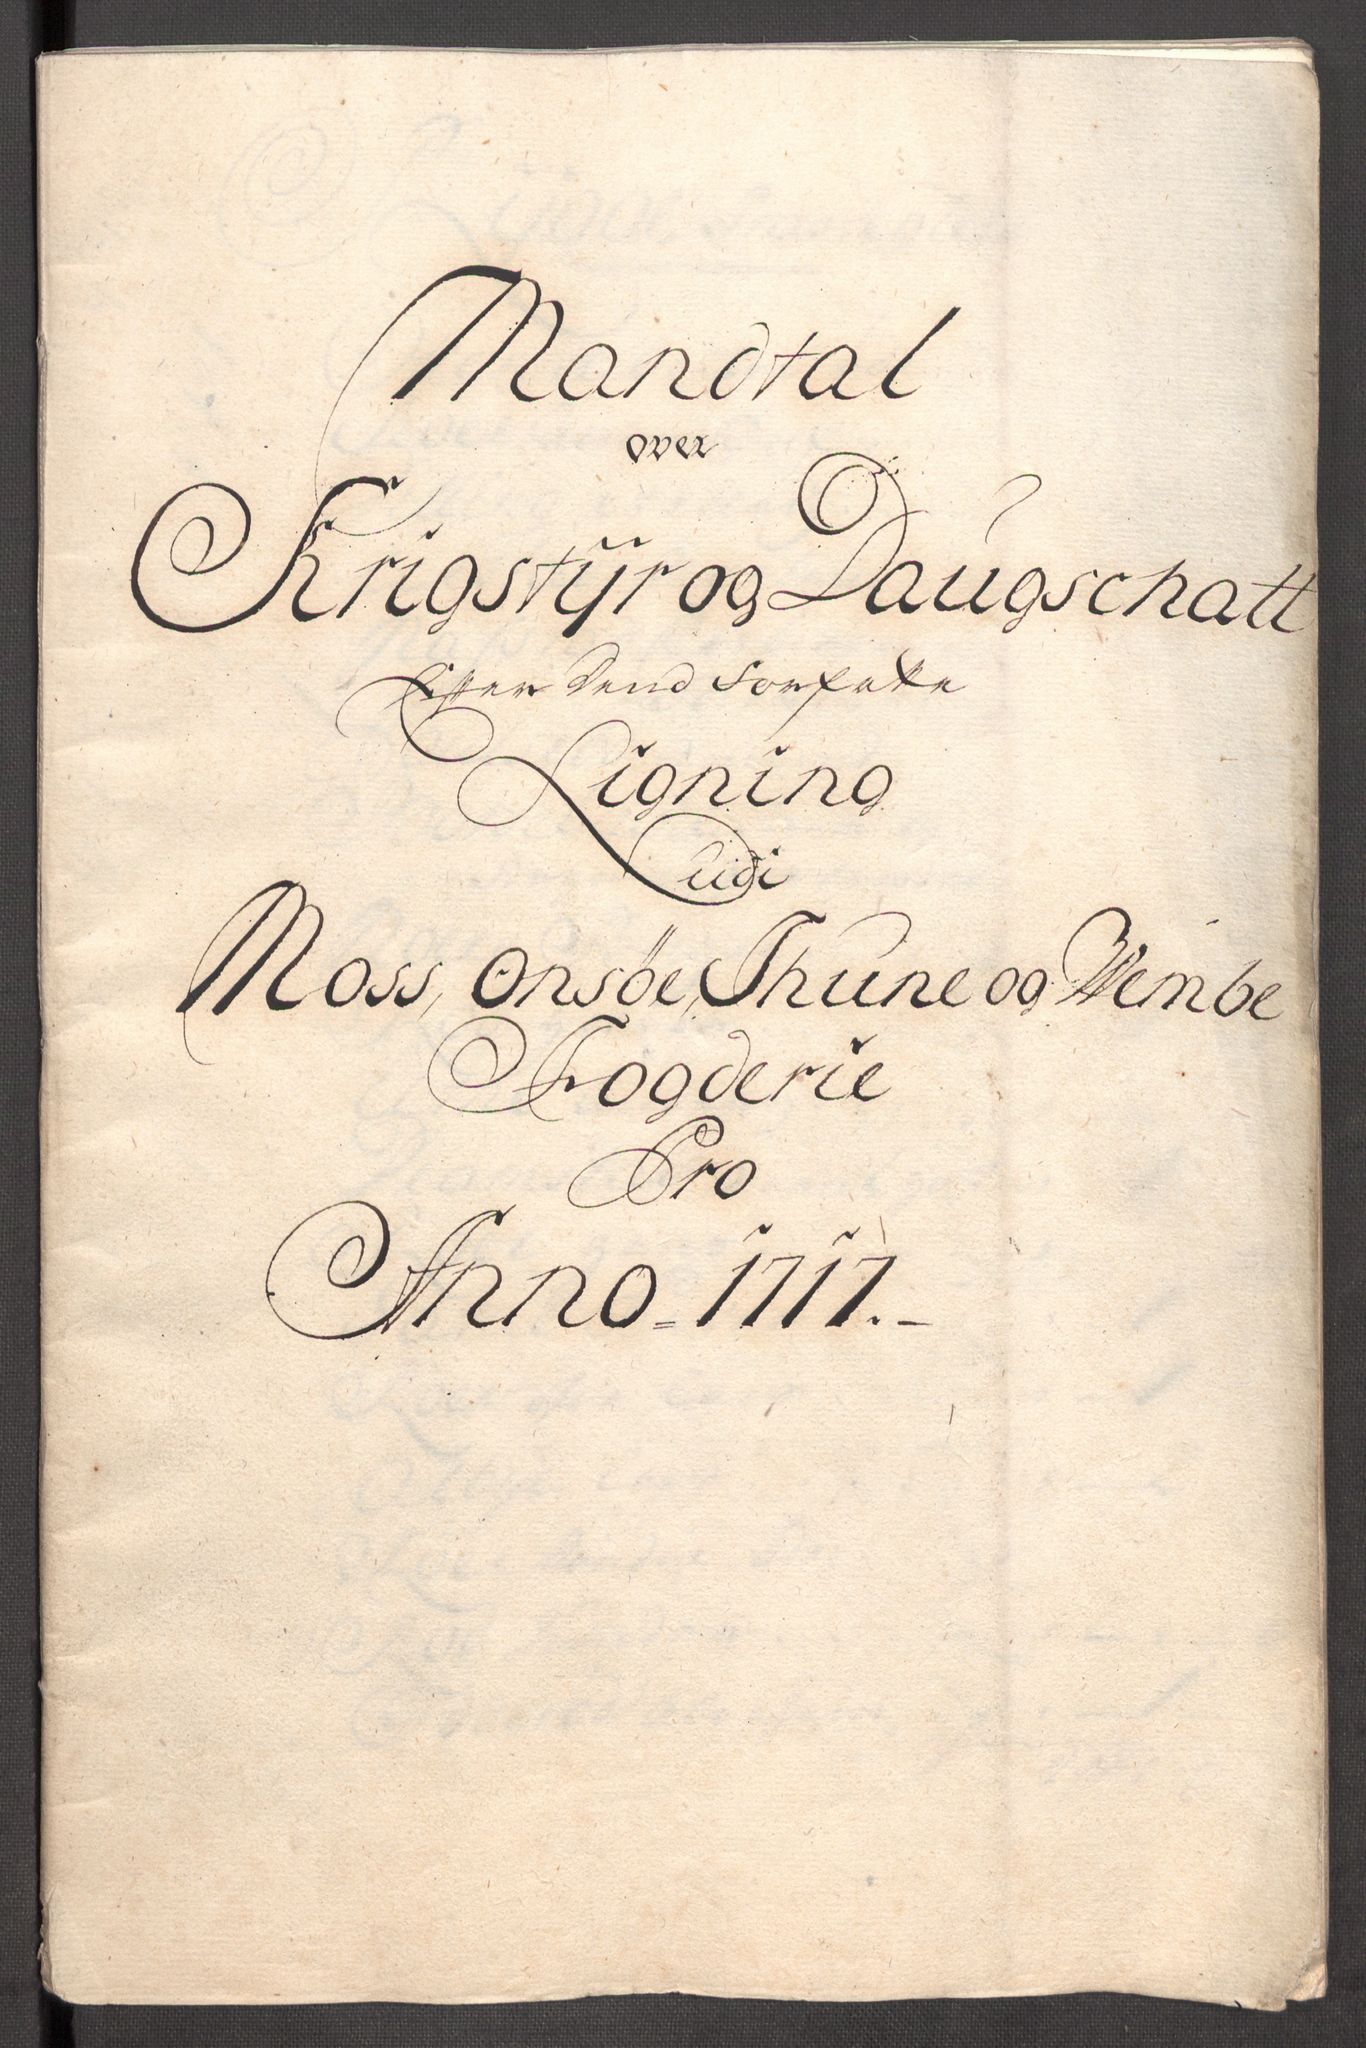 Mandtal
over
Krigstÿr og Daugschatt
Efter dend forfatte
Ligning
udi
Moss, Onsöe, Thune og Wembe
Fogderie
Pro
Anno = 1717. –